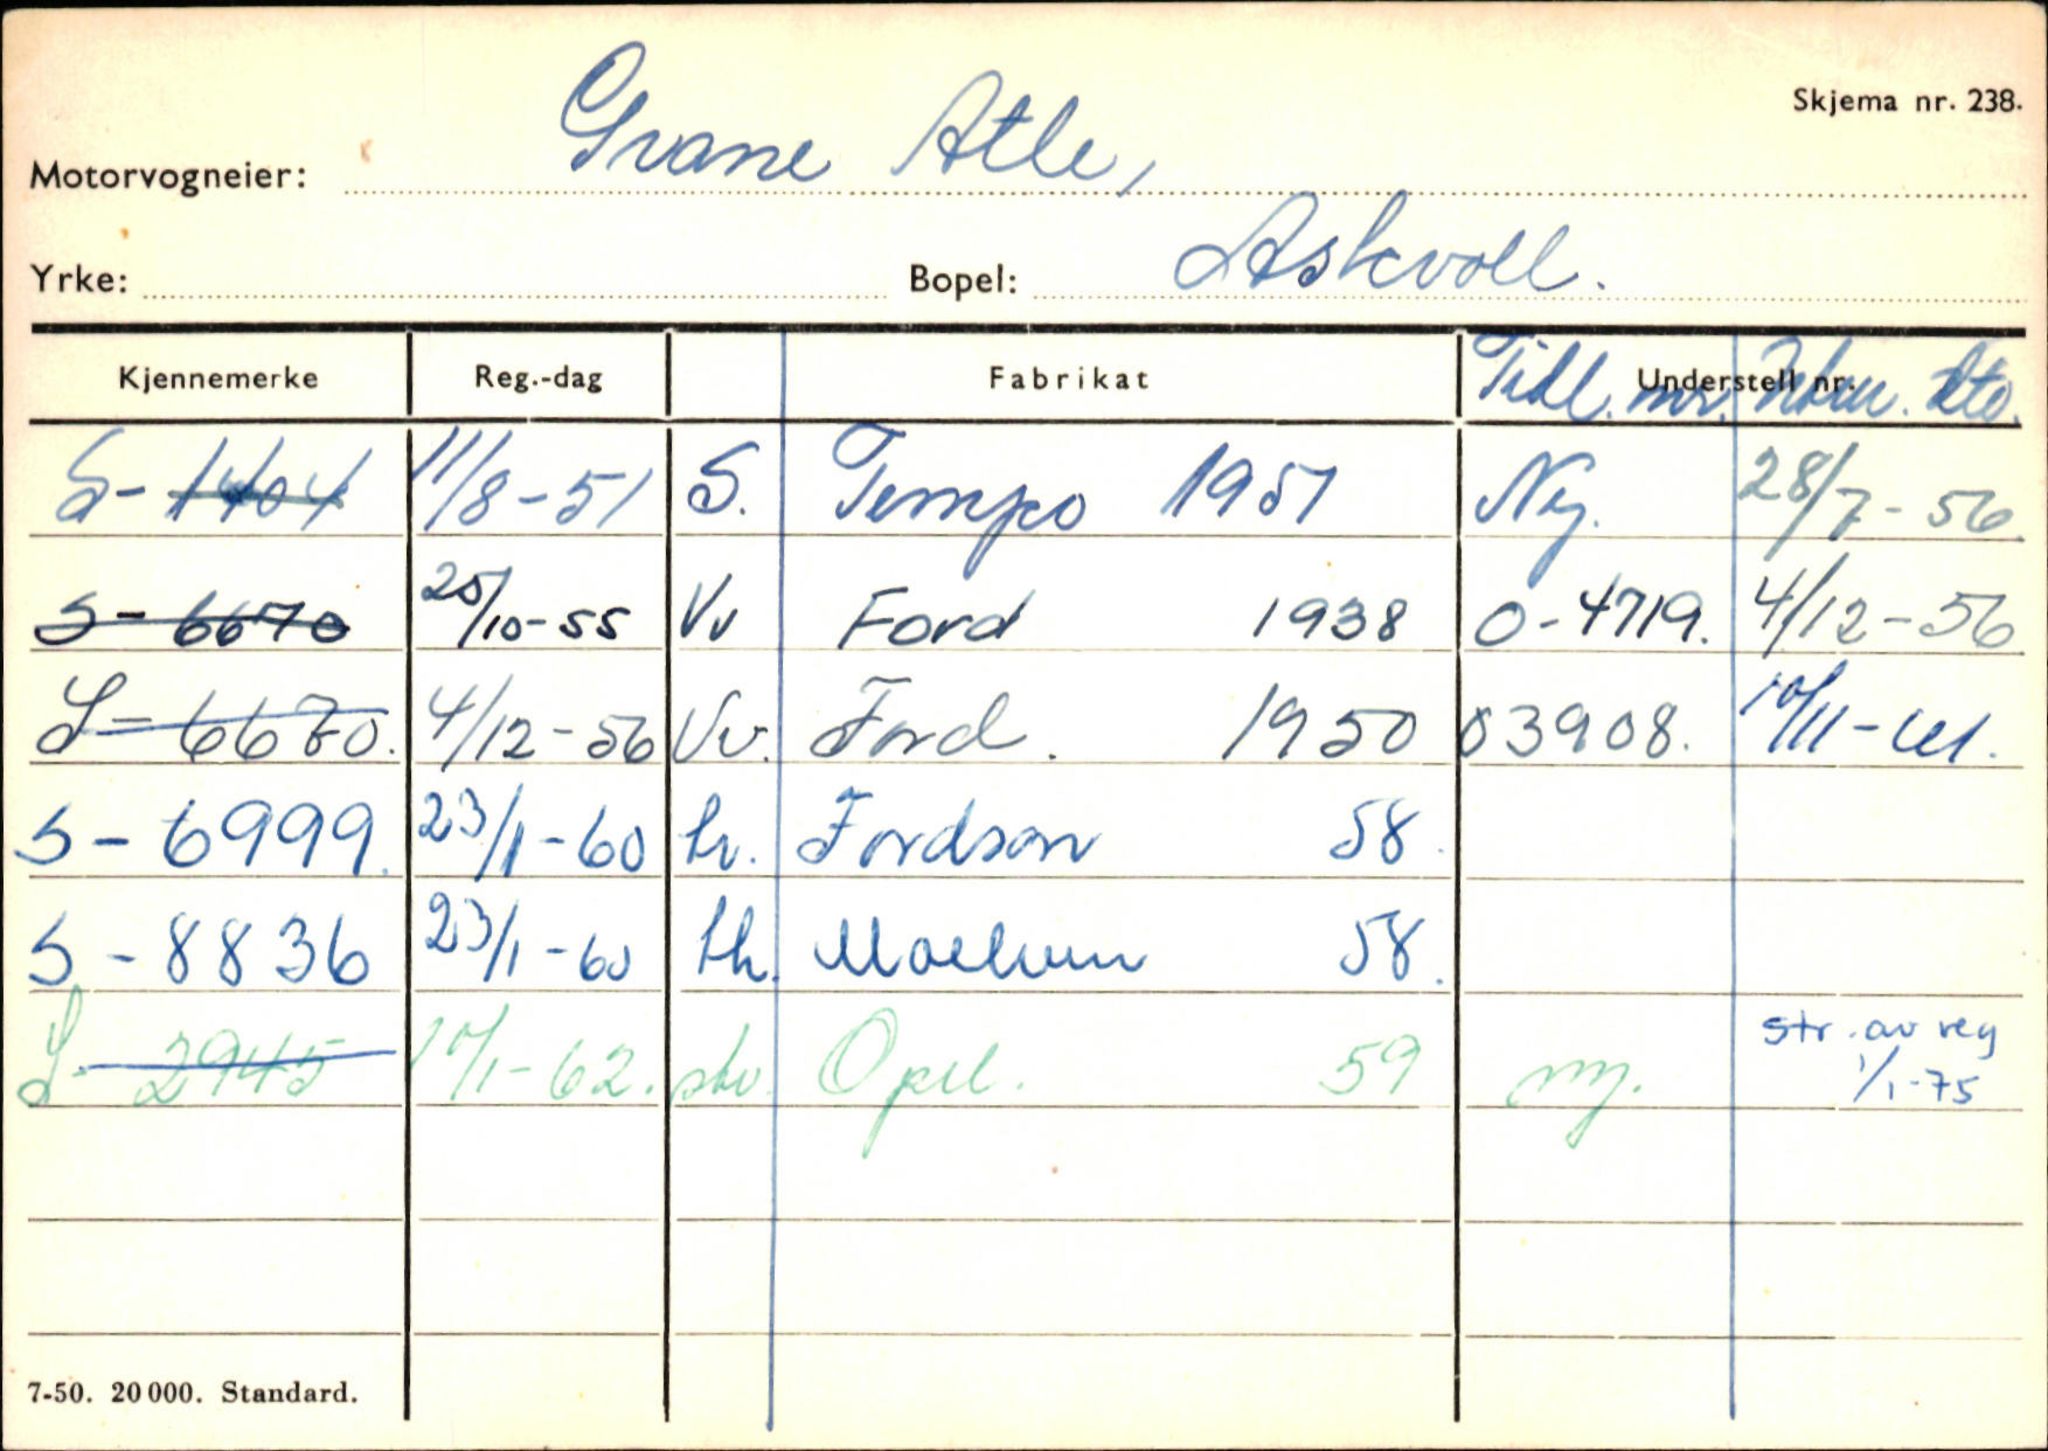 Skjema nr. 238.
Motorvogneier: Grane Atle,
Yrke: Bopel: Askvoll.
Kjennemerke Reg.-dag Fabrikat Understell nr. Tidl. nr. dto.
S- 1404 11/8-51 S. Tempo 1951 Ny. 28/7-56.
S- 6670 25/10-55 Vv Ford 1938 O-4719. 4/12-56
S- 6670. 4/12-56 Vv. Ford. 1950 03908. 10/11-61.
S- 6999. 23/1-60 Fordson 58.
S- 8836 23/1-60 Moelven 58.
S- 2945 10/1-62. stv. Opel. 59 ny. str. av reg
1/1-75
7-50. 20 000. Standard.